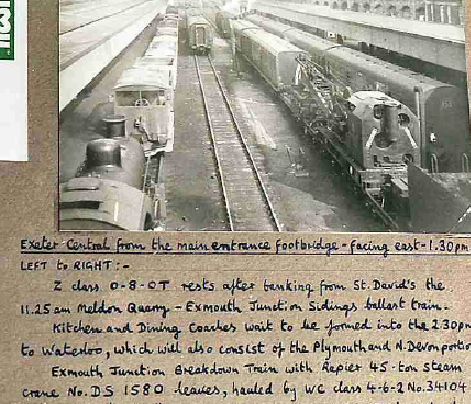 Exeter Central from the main entrance footbridge - facing east - 1.30pm
LEFT to RIGHT :-
Z class 0-8-0T rests after banking from St. David's the
11.25 am Meldon Quarry - Exmouth Junction Sidings ballast train.
Kitchen and Dining Coaches wait to be formed into the 2.30pm
to Waterloo, which will also consist of the Plymouth and N. Devon portio
Exmouth Junction Breakdown Train with Rapier 45-ton steam
crane No. DS 1580 leaves, hauled by WC class 4-6-2 No. 34104